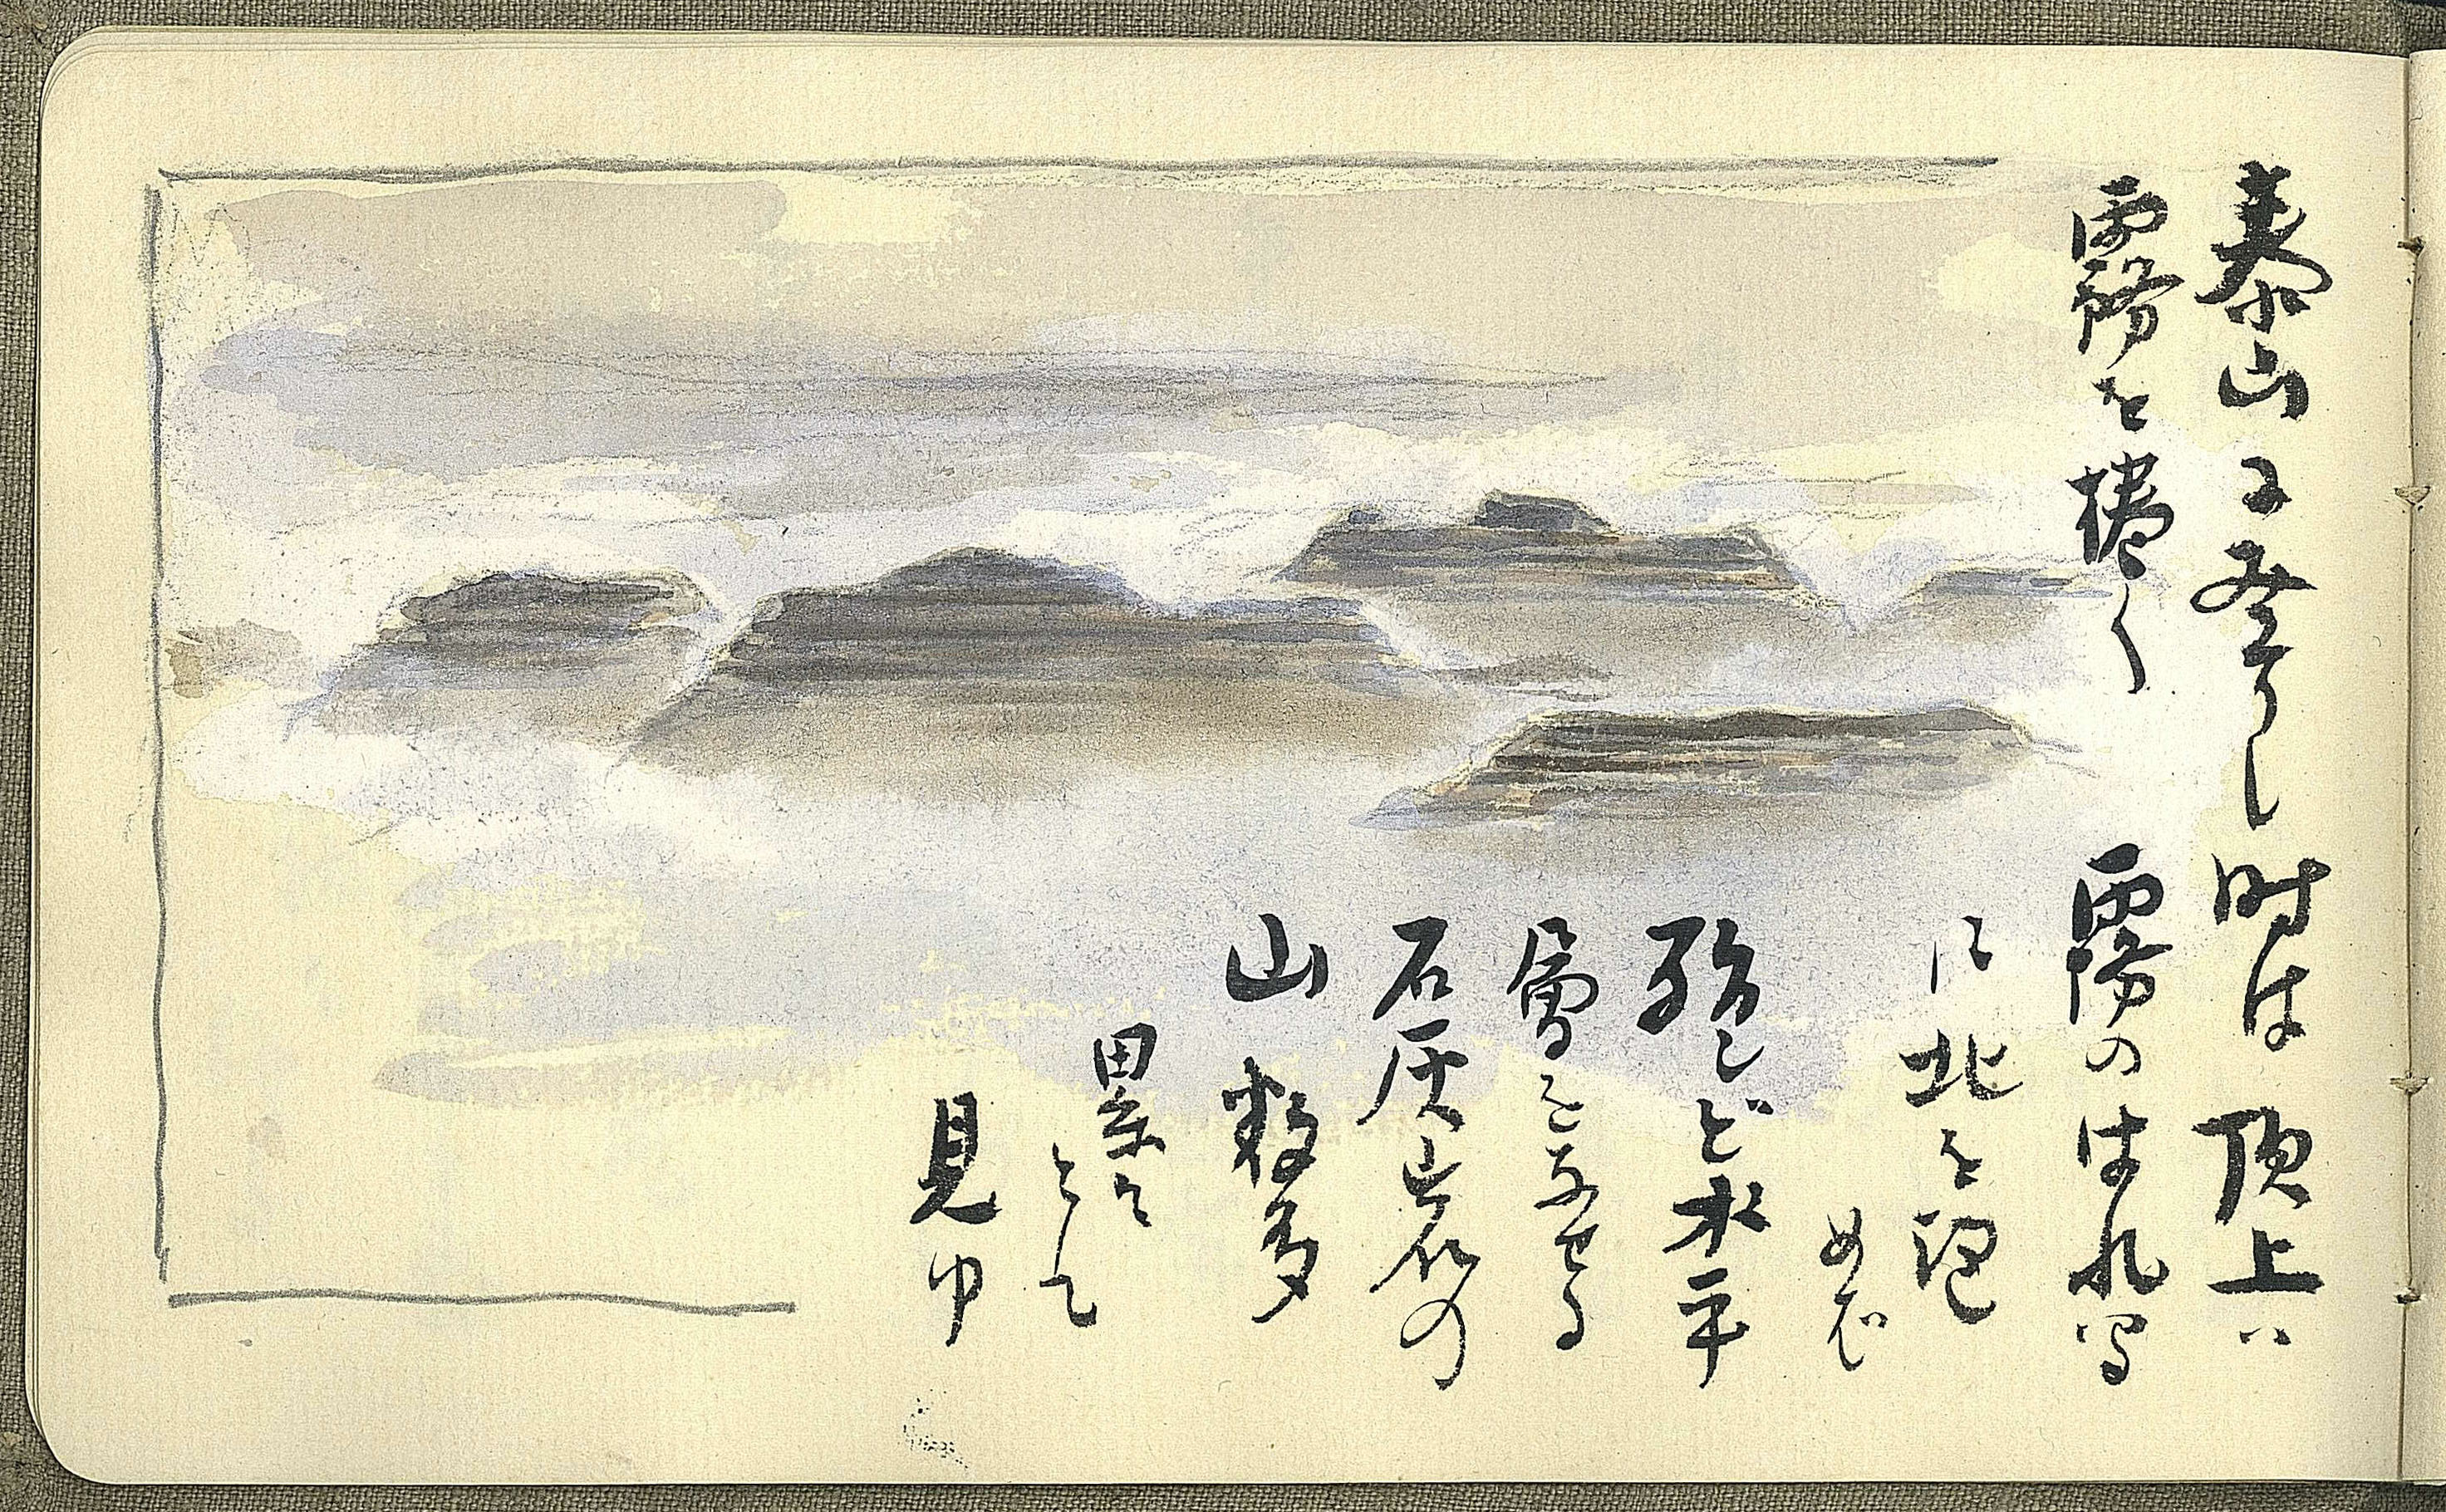 泰山に登りし時は頂上ハ
霧を捲く 霧のはれ間
に北を望
めば
殆んど水平
層をなせる
石灰岩の
山 数多
累々
として
見ゆ